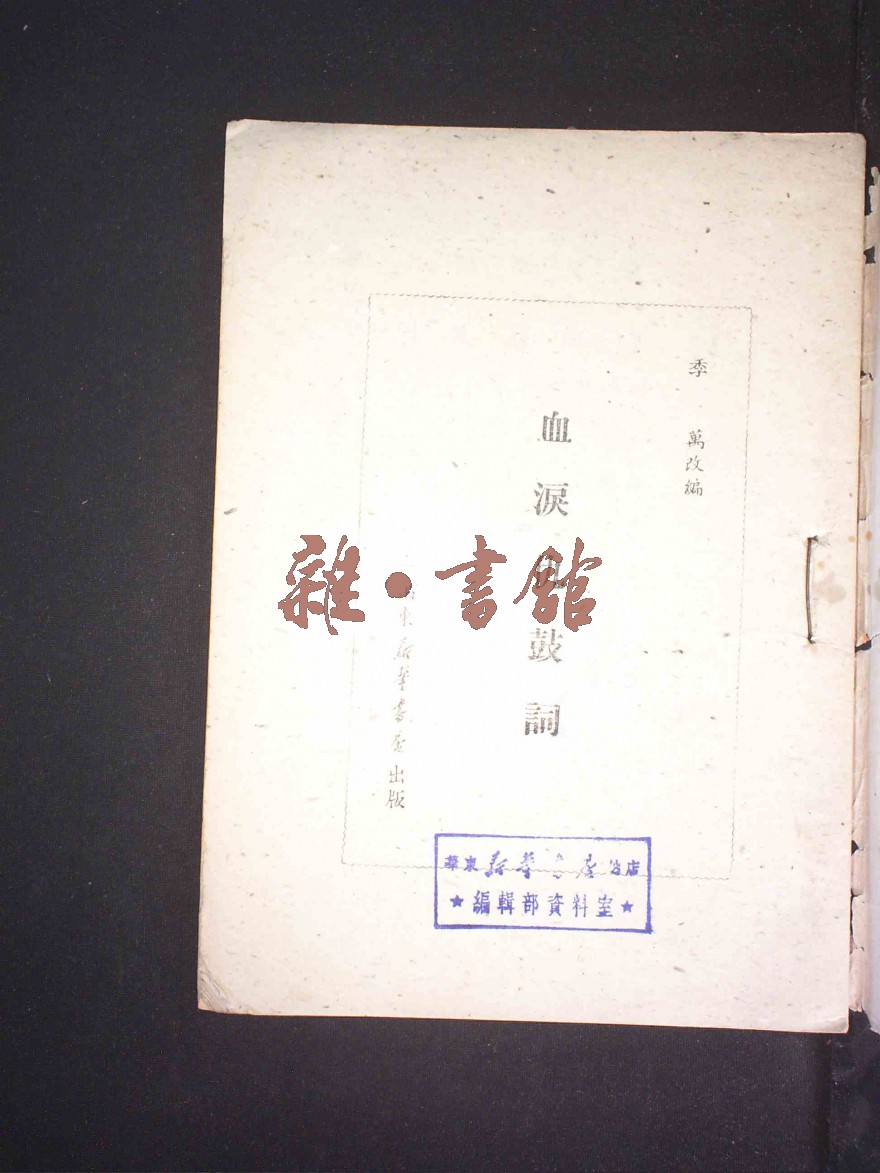 季 萬改編
血淚仇鼓詞
東新華書店出版
雜·書館
華東新華書店總店
★編輯部資料室★